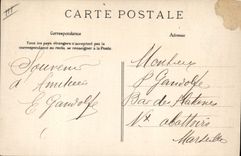 CARTE POSTALE
Correspondance
Adresse
Tous les pays étrangers n'acceptent pas la
correspondance au verso. (Se renseigner à la Poste)
Souvenir
d'Amitiés
E Gandolfe
Monsieur
P Gandolfe
Bar des Platanes
Vx abattoirs
Marseille